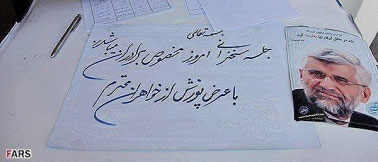 بسمه تعالی
جلسه سخنرانی امروز مخصوص برادران میباشد.
با عرض پوزش از خواهران محترم
FARS